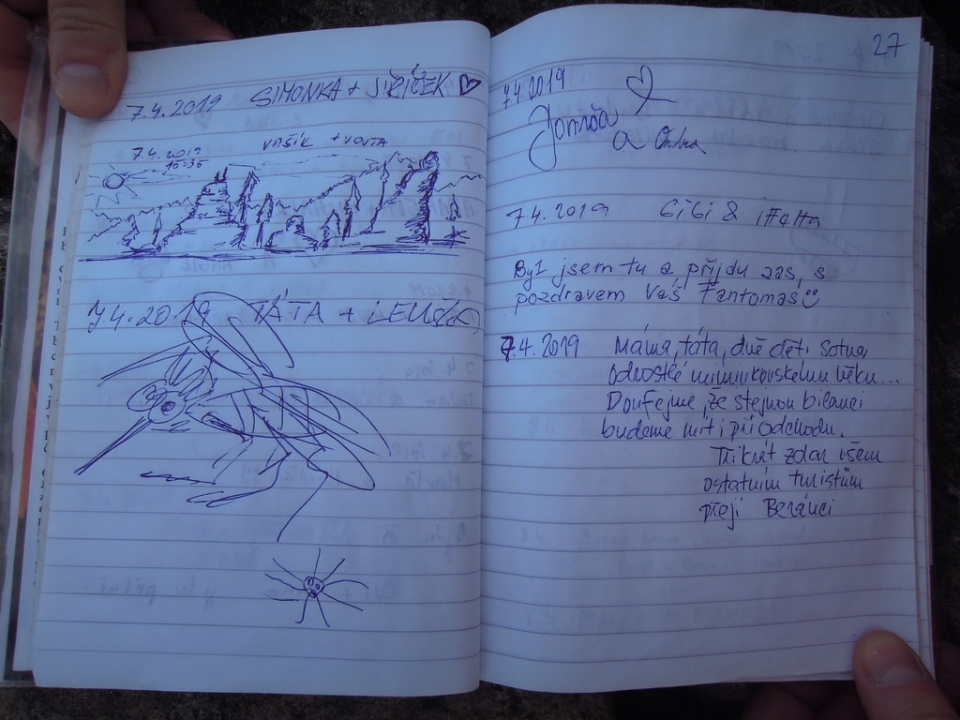 7.4.2019 SIMONKA + JIŘÍČEK
7.4.2019 VAŠÍK + VOJTA
15:35
7.4.2019 TÁTA +
27
7.4.2019
a Ondra
7.4.2019 &
Byl jsem tu a přijdu zas, s
pozdravem Váš Fantomas
7.4.2019 Máma, táta, dvě děti sotva
odrostlé mimi
Doufejme, že stejnou bilanci
budeme mít i při odchodu.
Třikrát zdar všem
ostatním turistům
přejí Beránci